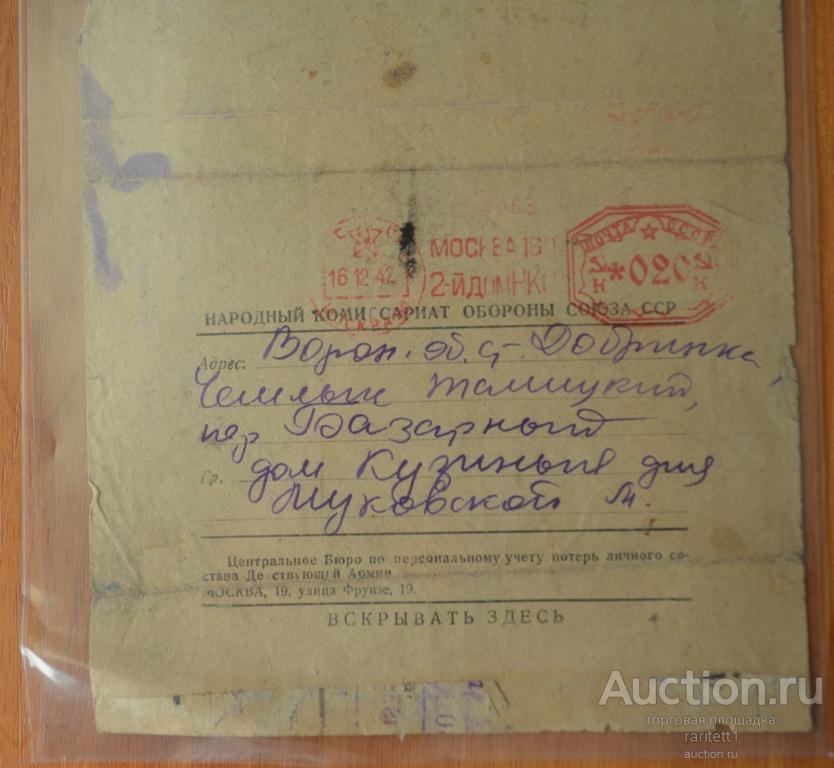 МОСКВА 160
ПОЧТА СССР
16 12 42
2-Й ДОМ НКО
*020
КУК
МОСКВА
НАРОДНЫЙ КОМИССАРИАТ ОБОРОНЫ СОЮЗА ССР
Адрес: Ворон. об. ст. Добринка,
Чемлык Талицкий,
пер Базарный
Гр. дом Кузиных для
Шуковской М.
Центральное Бюро по персональному учету потерь личного со-
става Действующей Армии
МОСКВА, 19, улица Фрунзе, 19.
ВСКРЫВАТЬ ЗДЕСЬ
Auction.ru
торговая площадка
raritett1
auction.ru